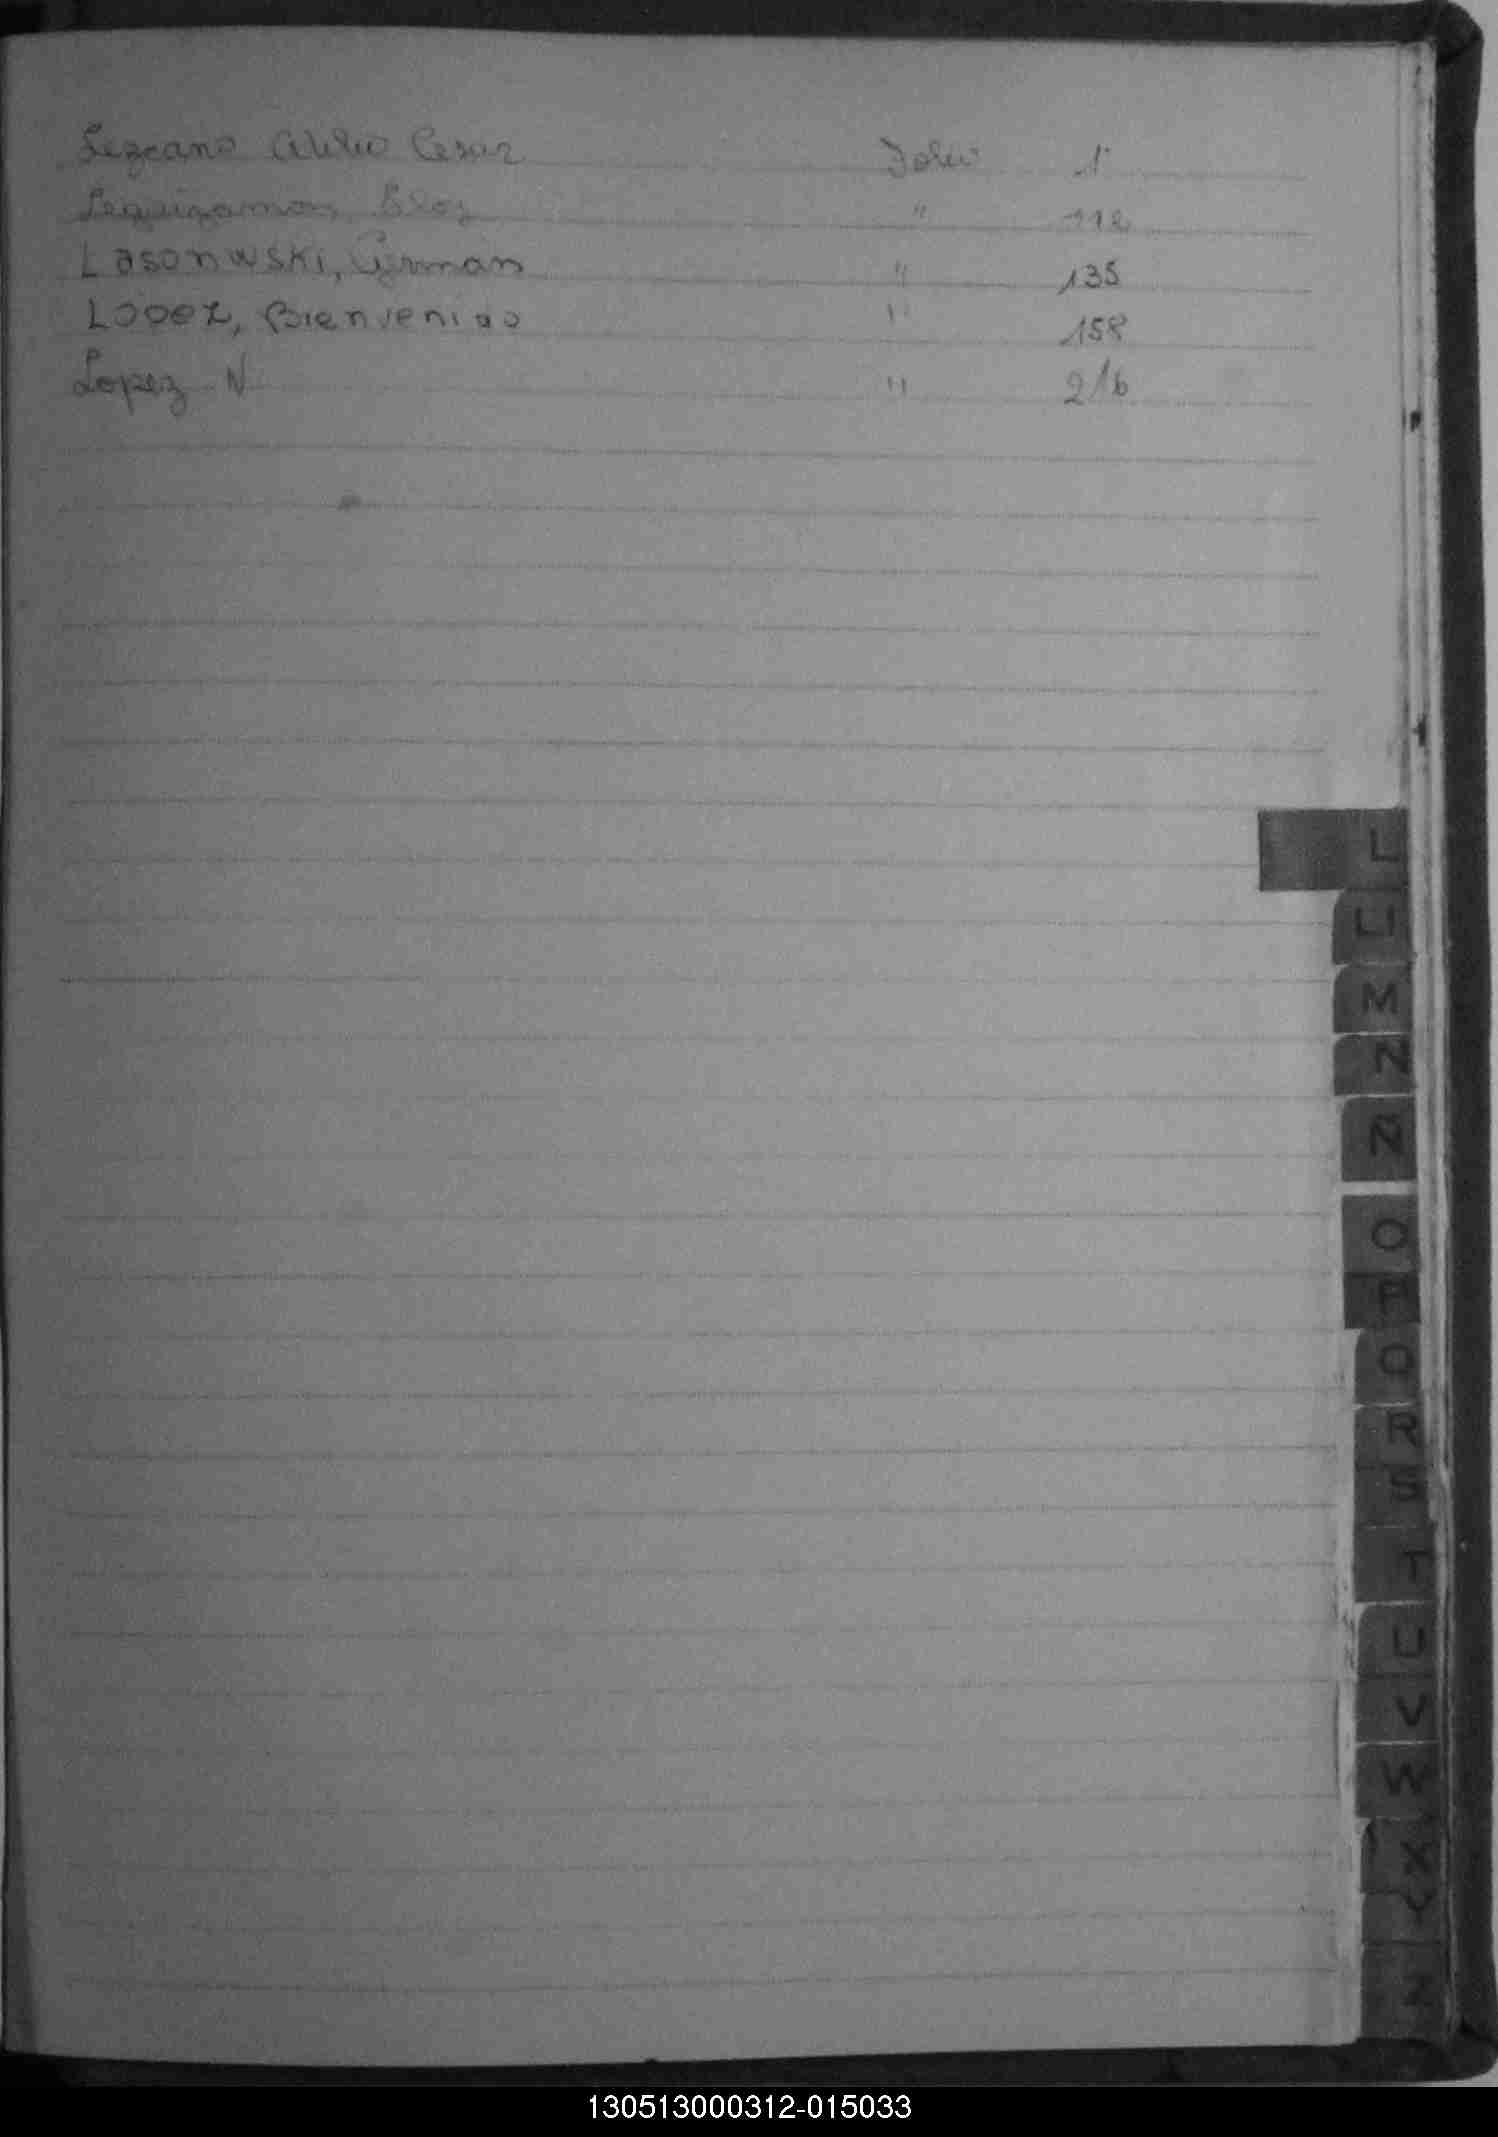 Lezcano Atilio Cesar Folio 1
Leguizamon Blas " 112
Lasonwski, German " 135
Lopez, Bienvenido " 158
Lopez N " 216
L
LL
M
N
Ñ
O
P
Q
R
S
T
U
V
W
X
Y
Z
130513000312-015033